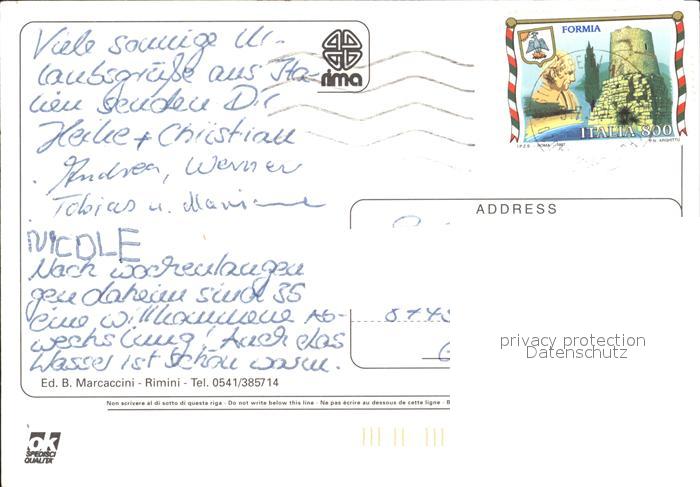 Viele sonnige Ur-
laubsgrüße aus Ita-
lien senden Dir
Heike + Christian
Andrea, Werner
Tobias u.
NICOLE
Nach wochenlangen
gen daheim sind 35
eine willkommene Ab-
wechslung! Auch das
Wasser ist schön warm.
rima
FORMIA
ITALIA 800
I.P.Z.S. - ROMA - 1997
ADDRESS
privacy protection
Datenschutz
Ed. B. Marcaccini - Rimini - Tel. 0541/385714
Non scrivere al di sotto di questa riga - Do not write below this line - Ne pas écrire au dessous de cette ligne - B
ok
SPEDISCI
QUALITA'